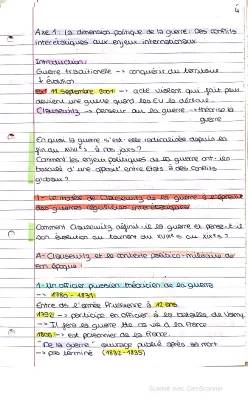 Axe 1 : la dimension politique de la guerre : Des conflits
interétatiques aux enjeux internationaux
Introduction :
Guerre traditionnelle --> conquérir du territoire
+ évolution
11 septembre 2001 --> acte violent qui fait peur
devient une guerre quand les EU la déclare
Clausewitz --> penseur sur la guerre --> théorise la
guerre
En quoi la guerre s'est-elle radicalisée depuis la
fin du XVIIIe s à nos jours ?
Comment les enjeux politiques de la guerre ont-ils
basculé d'une opposit° entre États à des conflits
globaux ?
1- Le modèle de Clausewitz de la guerre à l'épreuve
des guerres régulières interétatiques
Comment Clausewitz définit-il la guerre et pense-t-il
son évolution au tournant du XVIIIe s au XIXe s ?
A- Clausewitz et le contexte politico-militaire de
son époque :
1- Un officier prussien théoricien de la guerre
--> 1780 - 1831
Entre ds l'armée Prussienne à 12 ans
1792 --> participe en officier à la bataille de Valmy
--> Il fera la guerre tte sa vie à la France
1806 --> est prisonnier de la France
"De la guerre" ouvrage publié après sa mort
--> pas terminé (1832-1835)
Scanné avec CamScanner